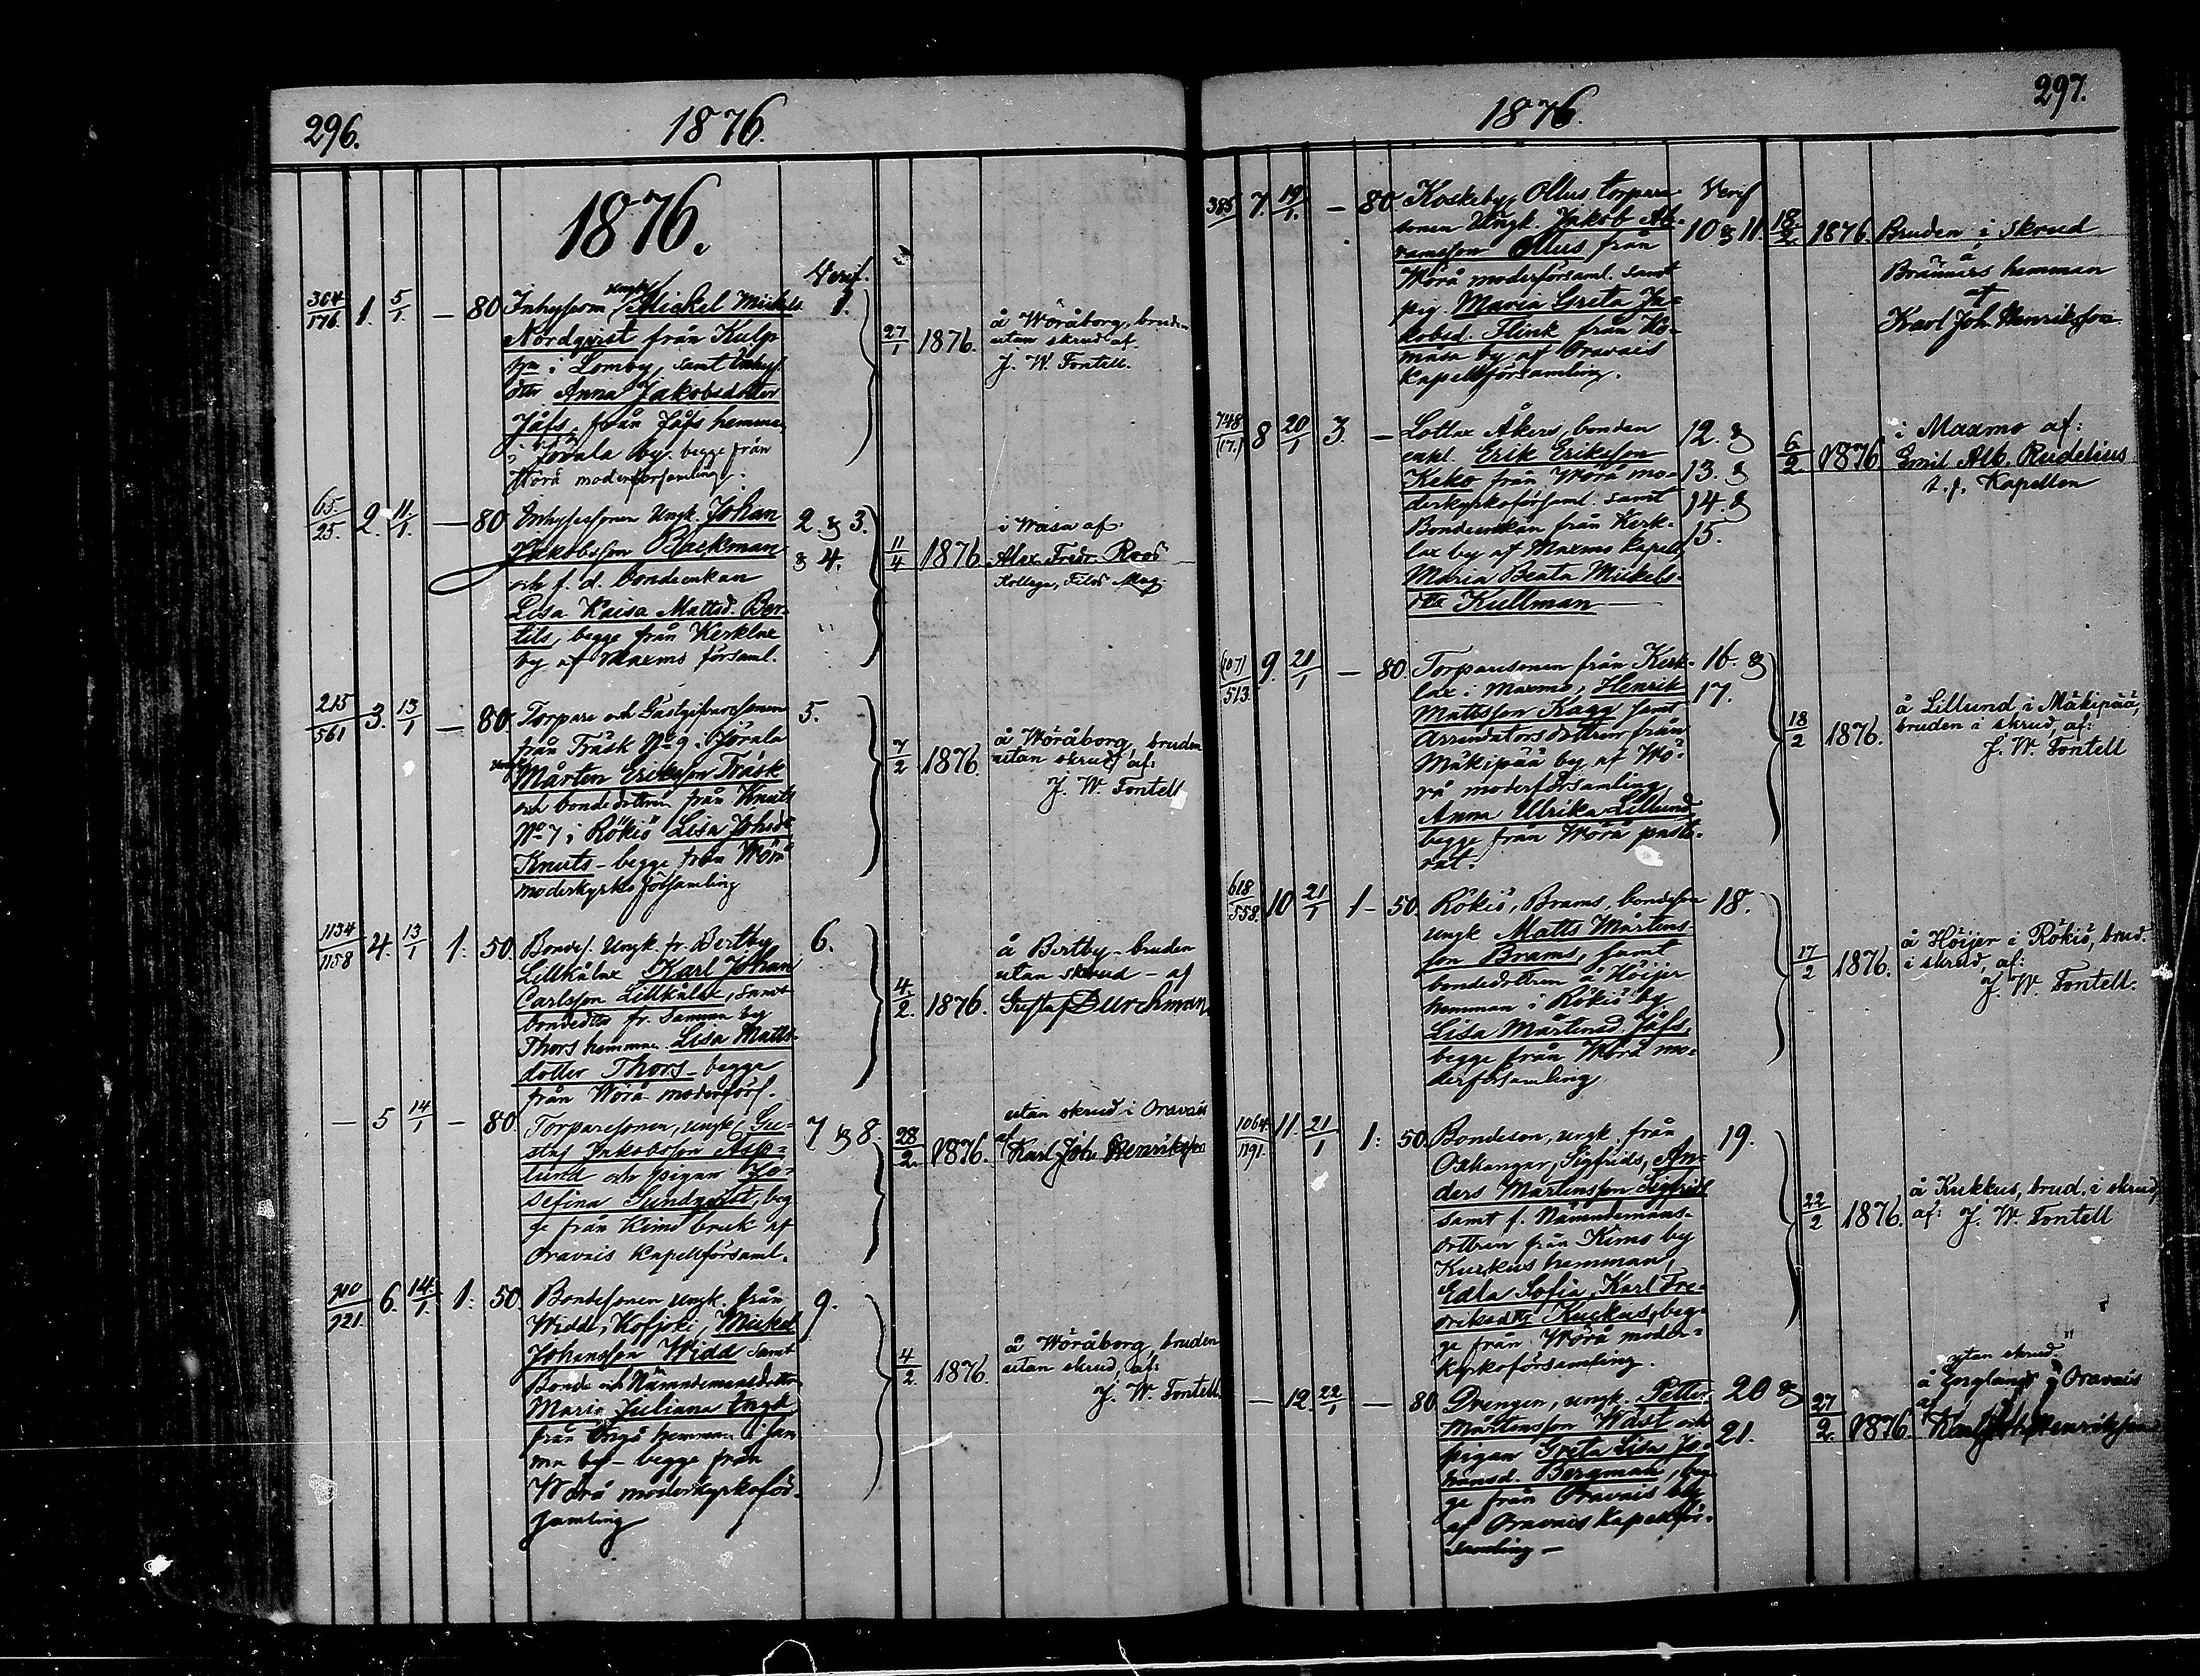 296.
1876.
1876.
Verif.
364/176. 1. 5/1. — 80. Inhysesm ungk. Mickel Mickels. 1.
Nordqvist från Kulp
i Lomby, samt Inhys.
dtr Anna Jakobsdotter
Jåfs, från Jåfs hemman
by, begge från
Wörå moderförsamling.
27/1 1876. å Wöråborg, bruden
utan skrud af
J. W. Fontell.
65/25. 2. 11/1. — 80. Inhysessonen Ungk. Johan 2. & 3.
Jakobsson Backman & 4.
och f. d. bondeenkan
Lisa Kaisa Mattsd. Ber-
tils, begge från Kerklax
by af Maxmo församl.
11/4 1876. i Wasa af:
Alex. Fredr. Roos
Kollega, Filos Mag.
215/561 3. 13/1 — 80. Torpare och Gästgifvaresonen 5.
från Träsk No 9 i
Mårten Eriksson Träsk
och bondedottren från Knuts
No 7 i Rökiö Lisa Johsdr
Knuts - begge från Wörå
moderkyrko församling
7/2 1876. å Wöråborg bruden
utan skrud af:
J. W. Fontell
1134/1158 4. 13/1 1. 50. Bondes. Ungk. fr. Bertby 6.
Lillkålax Karl Johan
Carlsson Lillkålax, samt
bondedtr fr. samma by
Thors hemman Lisa Matts-
dotter Thors - begge
från Wörå moderförs.
4/2. 1876. å Bertby - bruden
utan skrud - af
Gustaf Durchman
— 5 14/1 — 80. Torparesonen, ungk. Gu- 7 & 8.
staf Jakobsson Asp-
lund och pigan Jo-
sefina Sundqvist, beg-
ge från Kimo bruk af
Oravais Kapellförsaml.
28/2. 1876. utan skrud i Oravais
af Karl Joh. Henriksson
910/921. 6. 14/1. 1: 50. Bondesonen ungk. från 9.
Widd, Kofjoki, Mickel
Johansson Widd samt
Bonde och Nämndemansdottr
Maria Juliana Ingå
från Ingå hemman i sam
ma by - begge från
Wörå moderkyrkoför-
samling
4/2. 1876. å Wöråborg, bruden
utan skrud, af:
J. W. Fontell
297.
1876.
385 7. 19/1. — 80. Kaskeby, Ollus, torpare Verif
sonen Ungk. Jakob Ab- 10 & 11.
ramsson Ollus från
Wörå moderförsaml. samt
pig. Maria Greta Ja-
kobsd. Flink från Ko-
måsa by af Oravais
Kapellförsamling.
18/2. 1876. Bruden i skrud
å
Brännars hemman
af
Karl Joh. Henriksson
748/(17.) 8 20/1 3. — Lotlax Åkers, bonden 12. &
enkl. Erik Eriksson
Keko från Wörå mo- 13. &
derkyrkoförsaml. samt 14. &
Bondeenkan från Kerk- 15.
lax by af Maxmo kapell
Maria Beata Mickels-
dtr Kullman —
6/2 1876 i Maxmo af:
Emil Alb. Rudelius
t. f. Kapellan
1071/513. 9. 21/1 — 80. Torparesonen från Kerk- 16. &
lax i Maxmo, Henrik 17.
Mattsson Kagg samt
Arrendators dottren från
Mäkipää by af Wö-
rå moderförsamling
Anna Ulrika Lillund
begge från Wörå pasto-
rat.
18/2 1876. å Lillund i Mäkipää,
bruden i skrud, af:
J. W. Fontell
618/558. 10 21/1 1 — 50. Rökiö, Brams, bondeson 18.
ungk Matts Mårtens-
son Brams, samt
bondedottren å Höijer
hemman i Rökiö by
Lisa Mårtensd. Jåfs,
begge från Wörå mo-
derförsamling
17/2 1876. å Höijer i Rökiö, brud.
i skrud, af:
J. W. Fontell.
1064/1191. 11. 21/1 1: 50. Bondeson, ungk. från 19.
Oxkangar, Sigfrids, An-
ders Mårtensson Sigfrids
samt f. Nämndemans-
dottren från Kimo by
Kurkus hemman,
Edla Sofia Karl Fre-
driksdtr Kuckus, beg-
ge från Wörå moder-
kyrkoförsamling.
22/2 1876. å Kukkus, brud. i skrud,
af: J. W. Fontell
— 12. 22/1 — 80. Drengen, ungk. Petter 20 &
Mårtensson Wäst och 21.
pigan Greta Lisa Jo-
hansd. Bergman, beg-
ge från Oravais by
af Oravais Kapellför-
samling —
27/2. 1876. utan skrud
å i Oravais
af
Karl Joh. Henriksson